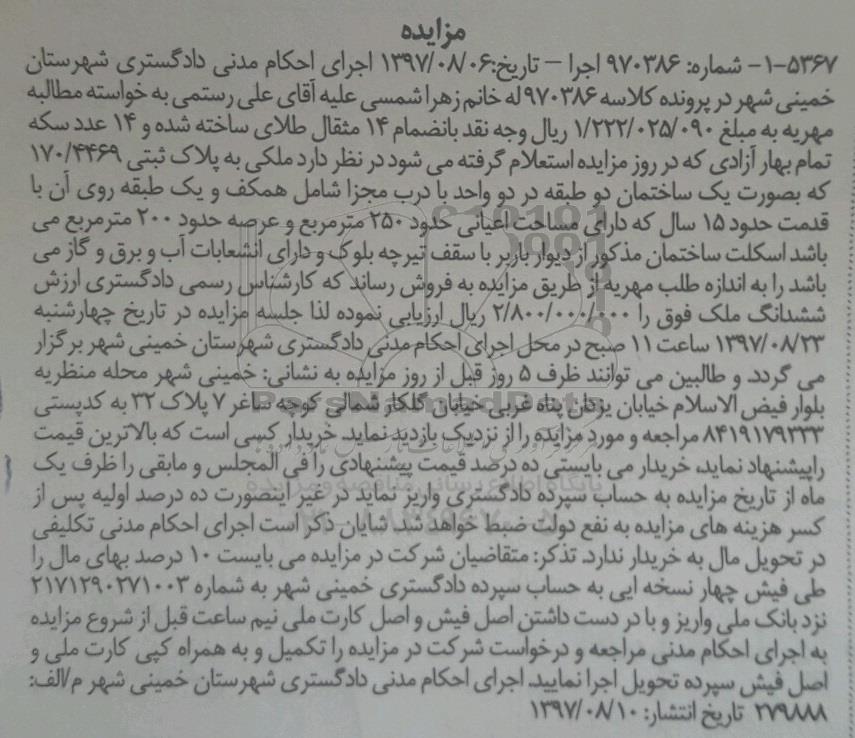 مزایده
۵۳۶۷-۱- شماره: ۹۷۰۳۸۶ اجرا – تاریخ:۱۳۹۷/۰۸/۰۶ اجرای احکام مدنی دادگستری شهرستان
خمینی شهر در پرونده کلاسه ۹۷۰۳۸۶ له خانم زهرا شمسی علیه آقای علی رستمی به خواسته مطالبه
مهریه به مبلغ ۱/۲۲۲/۰۲۵/۰۹۰ ریال وجه نقد بانضمام ۱۴ مثقال طلای ساخته شده و ۱۴ عدد سکه
تمام بهار آزادی که در روز مزایده استعلام گرفته می شود در نظر دارد ملکی به پلاک ثبتی ۱۷۰/۴۴۶۹
که بصورت یک ساختمان دو طبقه در دو واحد با درب مجزا شامل همکف و یک طبقه روی آن با
قدمت حدود ۱۵ سال که دارای مساحت اعیانی حدود ۲۵۰ مترمربع و عرصه حدود ۲۰۰ مترمربع می
باشد اسکلت ساختمان مذکور از دیوار باربر با سقف تیرچه بلوک و دارای انشعابات آب و برق و گاز می
باشد را به اندازه طلب مهریه از طریق مزایده به فروش رساند که کارشناس رسمی دادگستری ارزش
ششدانگ ملک فوق را ۲/۸۰۰/۰۰۰/۰۰۰ ریال ارزیابی نموده لذا جلسه مزایده در تاریخ چهارشنبه
۱۳۹۷/۰۸/۲۳ ساعت ۱۱ صبح در محل اجرای احکام مدنی دادگستری شهرستان خمینی شهر برگزار
می گردد. و طالبین می توانند ظرف ۵ روز قبل از روز مزایده به نشانی: خمینی شهر محله منظریه
بلوار فیض الاسلام خیابان یزدان پناه غربی خیابان گلکار شمالی کوچه ساغر ۷ پلاک ۳۲ به کدپستی
۸۴۱۹۱۷۹۳۳۳ مراجعه و مورد مزایده را از نزدیک بازدید نماید. خریدار کسی است که بالاترین قیمت
راپیشنهاد نماید، خریدار می بایستی ده درصد قیمت پیشنهادی را فی المجلس و مابقی را ظرف یک
ماه از تاریخ مزایده به حساب سپرده دادگستری واریز نماید در غیر اینصورت ده درصد اولیه پس از
کسر هزینه های مزایده به نفع دولت ضبط خواهد شد. شایان ذکر است اجرای احکام مدنی تکلیفی
در تحویل مال به خریدار ندارد. تذکر: متقاضیان شرکت در مزایده می بایست ۱۰ درصد بهای مال را
طی فیش چهار نسخه ایی به حساب سپرده دادگستری خمینی شهر به شماره ۲۱۷۱۲۹۰۲۷۱۰۰۳
نزد بانک ملی واریز و با در دست داشتن اصل فیش و اصل کارت ملی نیم ساعت قبل از شروع مزایده
به اجرای احکام مدنی مراجعه و درخواست شرکت در مزایده را تکمیل و به همراه کپی کارت ملی و
اصل فیش سپرده تحویل اجرا نمایید. اجرای احکام مدنی دادگستری شهرستان خمینی شهر م/الف:
۲۷۹۸۸۸ تاریخ انتشار: ۱۳۹۷/۰۸/۱۰